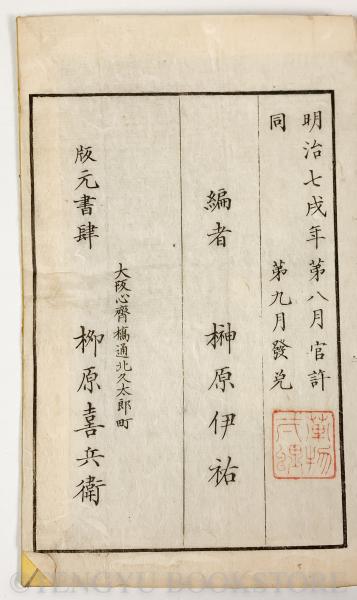 明治七戌年第八月官許
同 第九月發兌
編者 榊原伊祐
大阪心齊橋通北久太郎町
版元書肆 柳原喜兵衛
©TENGYU BOOKSTORE